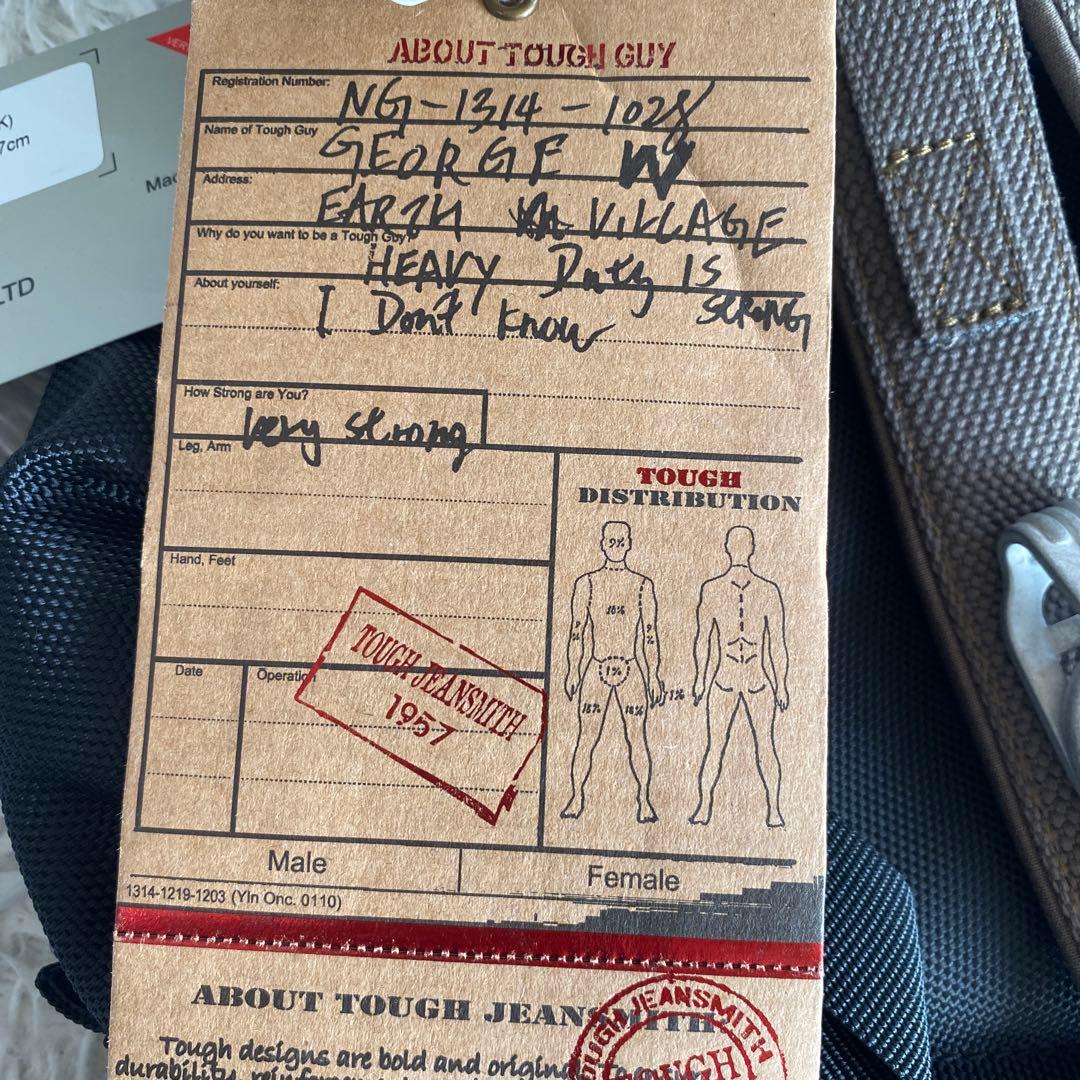 VER
K)
7cm
Mad
LTD
ABOUT TOUGH GUY
Registration Number:
NG-1314-1028
Name of Tough Guy
GEORGE W
Address:
EARTH VILLAGE
Why do you want to be a Tough Guy?
HEAVY Duty IS STRONG
About yourself:
I Don't know
How Strong are You?
Very strong
Leg, Arm
TOUGH
DISTRIBUTION
9%
18%
9%
9%
1%
1%
18%
18%
Hand, Feet
Date
Operatio
TOUGH JEANSMITH
1957
Male
Female
1314-1219-1203 (Yln Onc. 0110)
ABOUT TOUGH JEANSMITH
Tough designs are bold and origin
durability, reinfor
TOUGH JEANSMITH
TOUGH